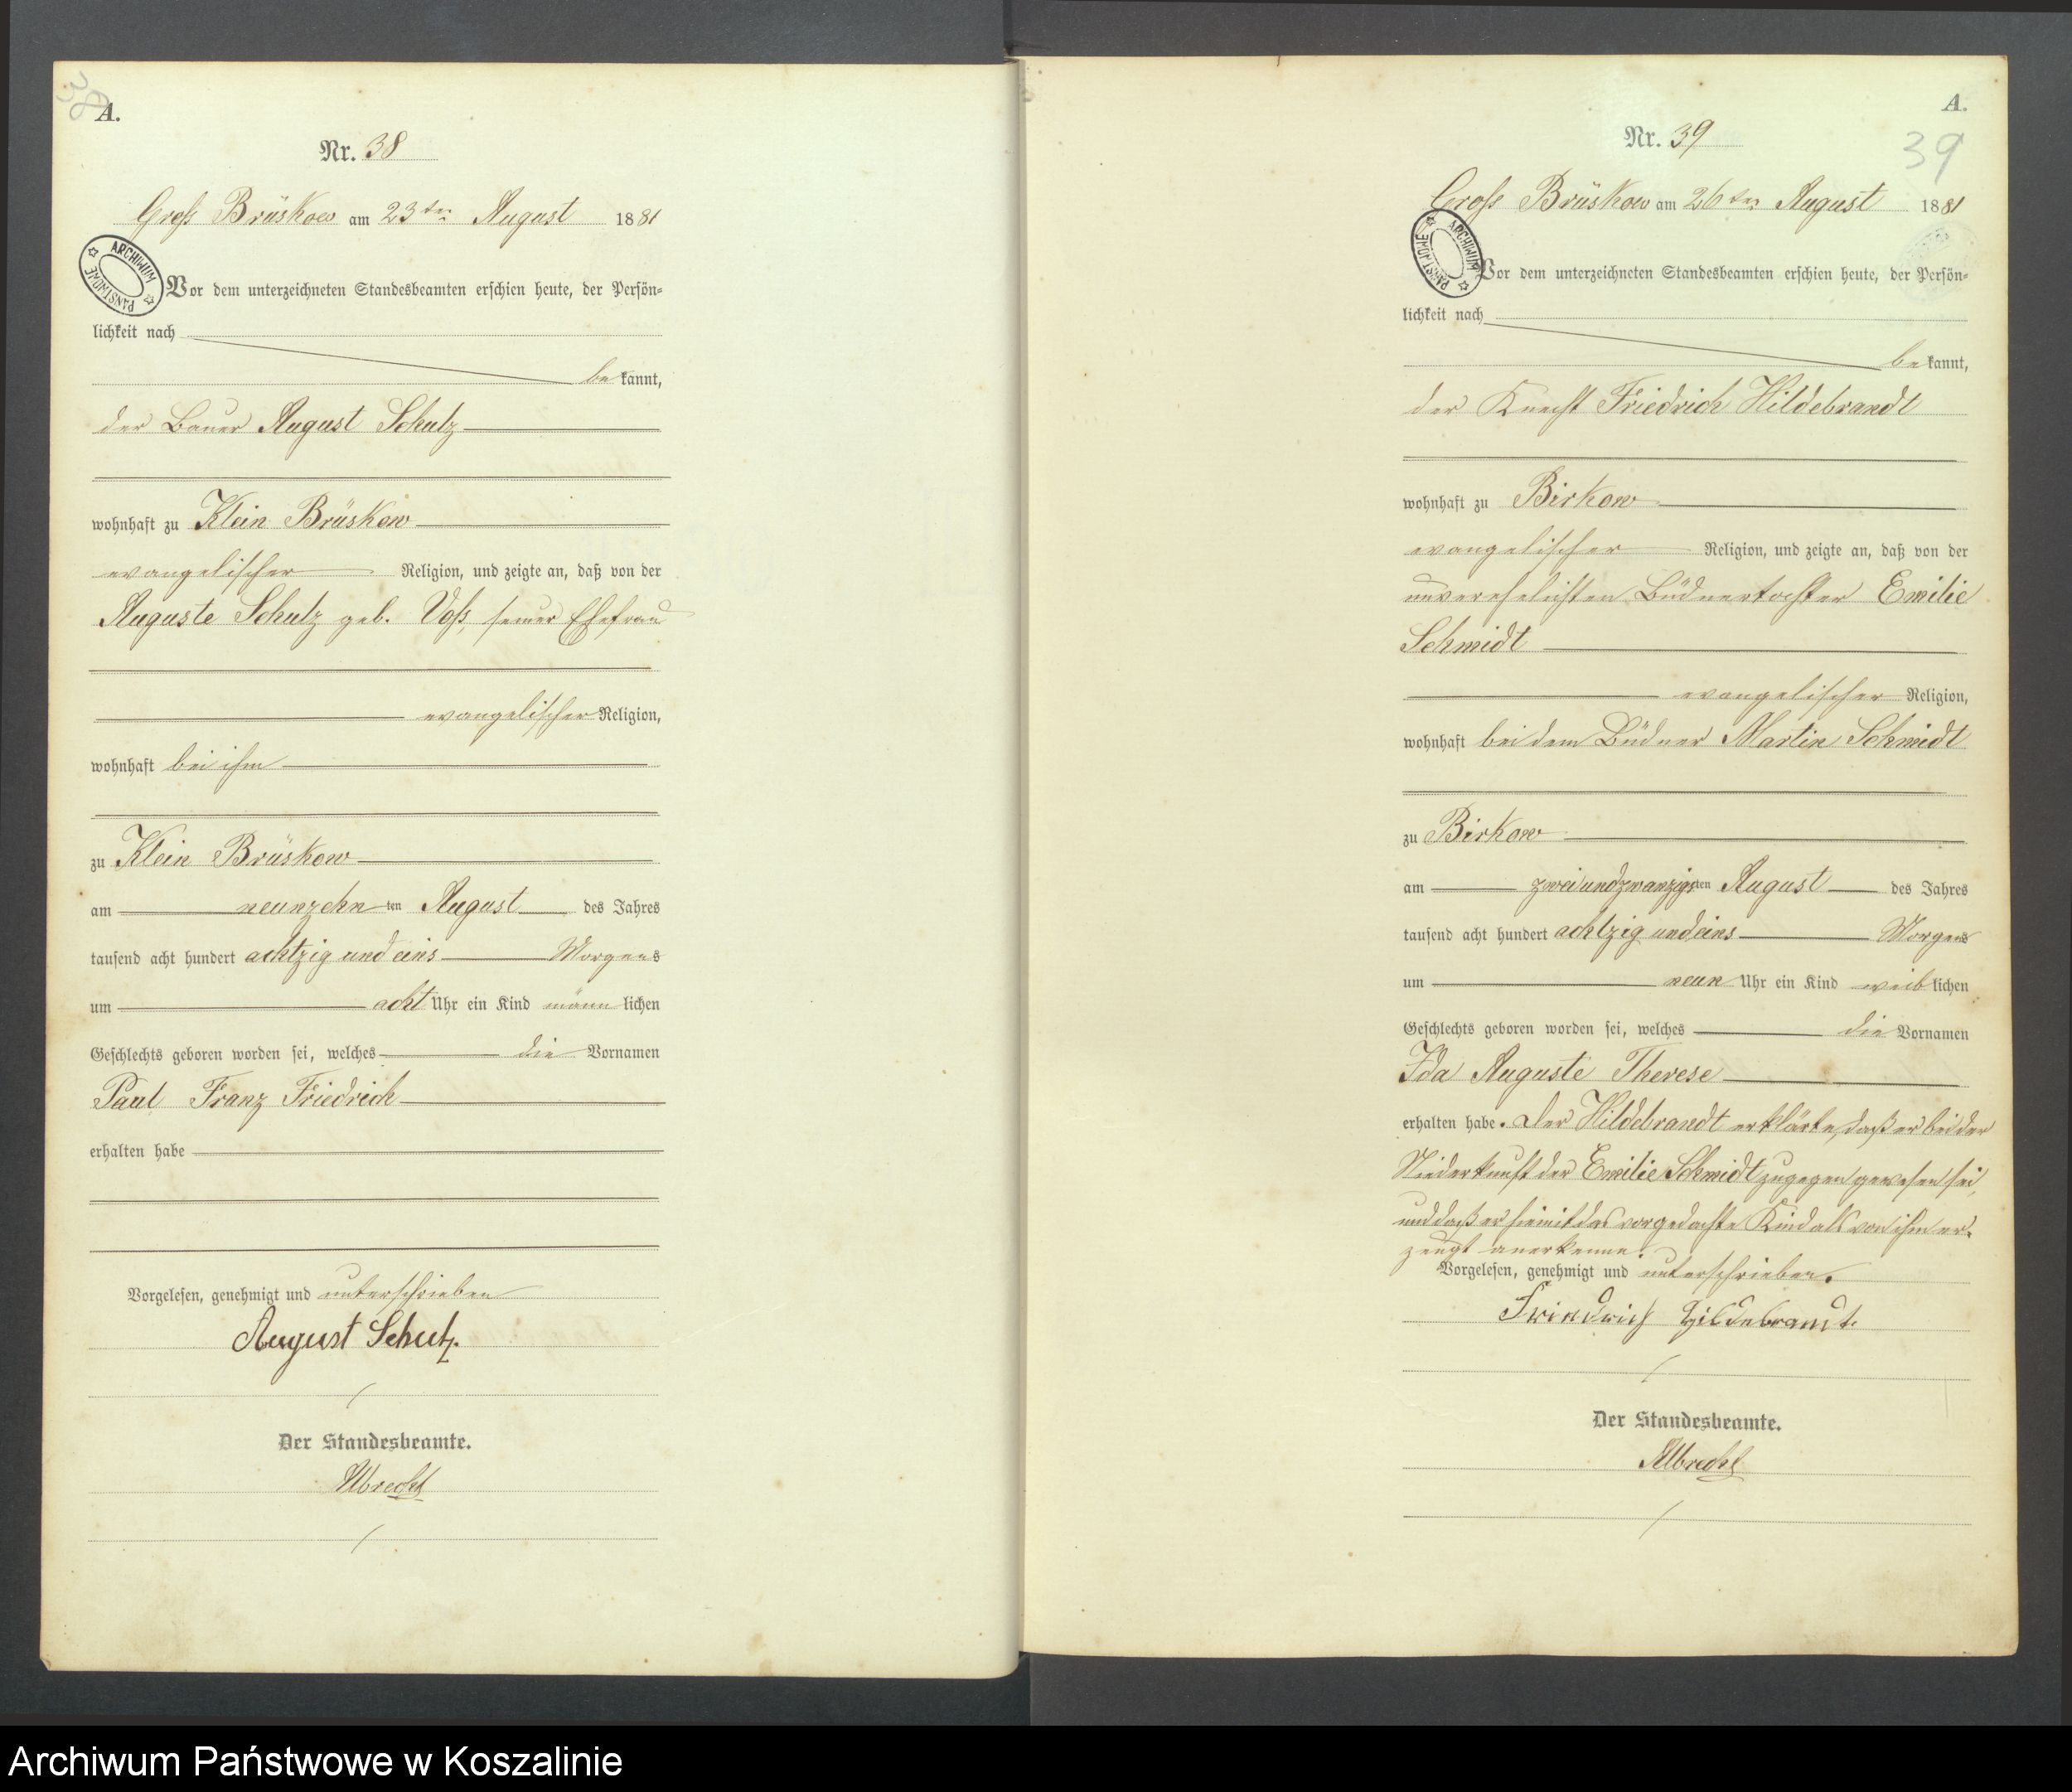 38
A.
Nr. 38
Groß Brüskow am 23ten August 1881
ARCHIWUM PAŃSTWOWE
Vor dem unterzeichneten Standesbeamten erschien heute, der Persön-
lichkeit nach
bekannt,
der Bauer August Schulz
wohnhaft zu Klein Brüskow
evangelischer Religion, und zeigte an, daß von der
Auguste Schulz geb. Voß, seiner Ehefrau
evangelischer Religion,
wohnhaft bei ihm
zu Klein Brüskow
am neunzehnten August des Jahres
tausend acht hundert achtzig und eins Morgens
um acht Uhr ein Kind männlichen
Geschlechts geboren worden sei, welches die Vornamen
Paul Franz Friedrich
erhalten habe
Vorgelesen, genehmigt und unterschrieben
August Schulz.
Der Standesbeamte.
Albrecht
A.
39
Nr. 39
Groß Brüskow am 26ten August 1881
ARCHIWUM PAŃSTWOWE
Vor dem unterzeichneten Standesbeamten erschien heute, der Persön-
lichkeit nach
bekannt,
der Knecht Friedrich Hildebrandt
wohnhaft zu Birkow
evangelischer Religion, und zeigte an, daß von der
unverehelichten Büdnertochter Emilie
Schmidt
evangelischer Religion,
wohnhaft bei dem Büdner Martin Schmidt
zu Birkow
am zweiundzwanzigsten August des Jahres
tausend acht hundert achtzig und eins Morgens
um neun Uhr ein Kind weiblichen
Geschlechts geboren worden sei, welches die Vornamen
Ida Auguste Therese
erhalten habe. Der Hildebrandt erklärte, daß er bei der
Niederkunft der Emilie Schmidt zugegen gewesen sei,
und daß er hiemit das vorgedachte Kind als von ihm er-
zeugt anerkenne.
Vorgelesen, genehmigt und unterschrieben.
Friedrich Hildebrandt.
Der Standesbeamte.
Albrecht
Archiwum Państwowe w Koszalinie